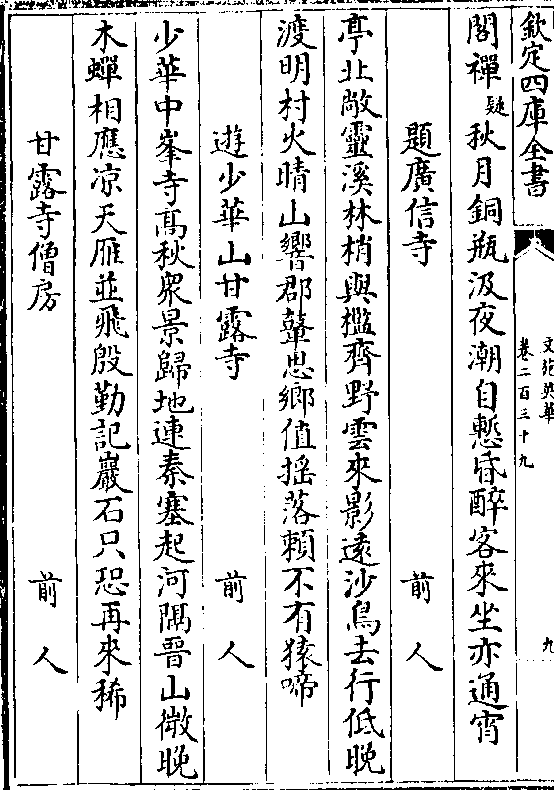 欽定四庫全書
文苑英華
卷二百三十九
九
閣禪疑秋月銅瓶汲夜潮自慙昏醉客來坐亦通宵
題廣信寺 前人
亭北敞靈溪林梢與檻齊野雲來影逺沙鳥去行低晚
渡明村火晴山響郡鼙思鄉值揺落頼不有猿啼
遊少華山甘露寺 前人
少華中峯寺髙秋衆景歸地連秦塞起河隔晉山微晚
木蟬相應凉天雁並飛殷勤記巖石只恐再來稀
甘露寺僧房 前人